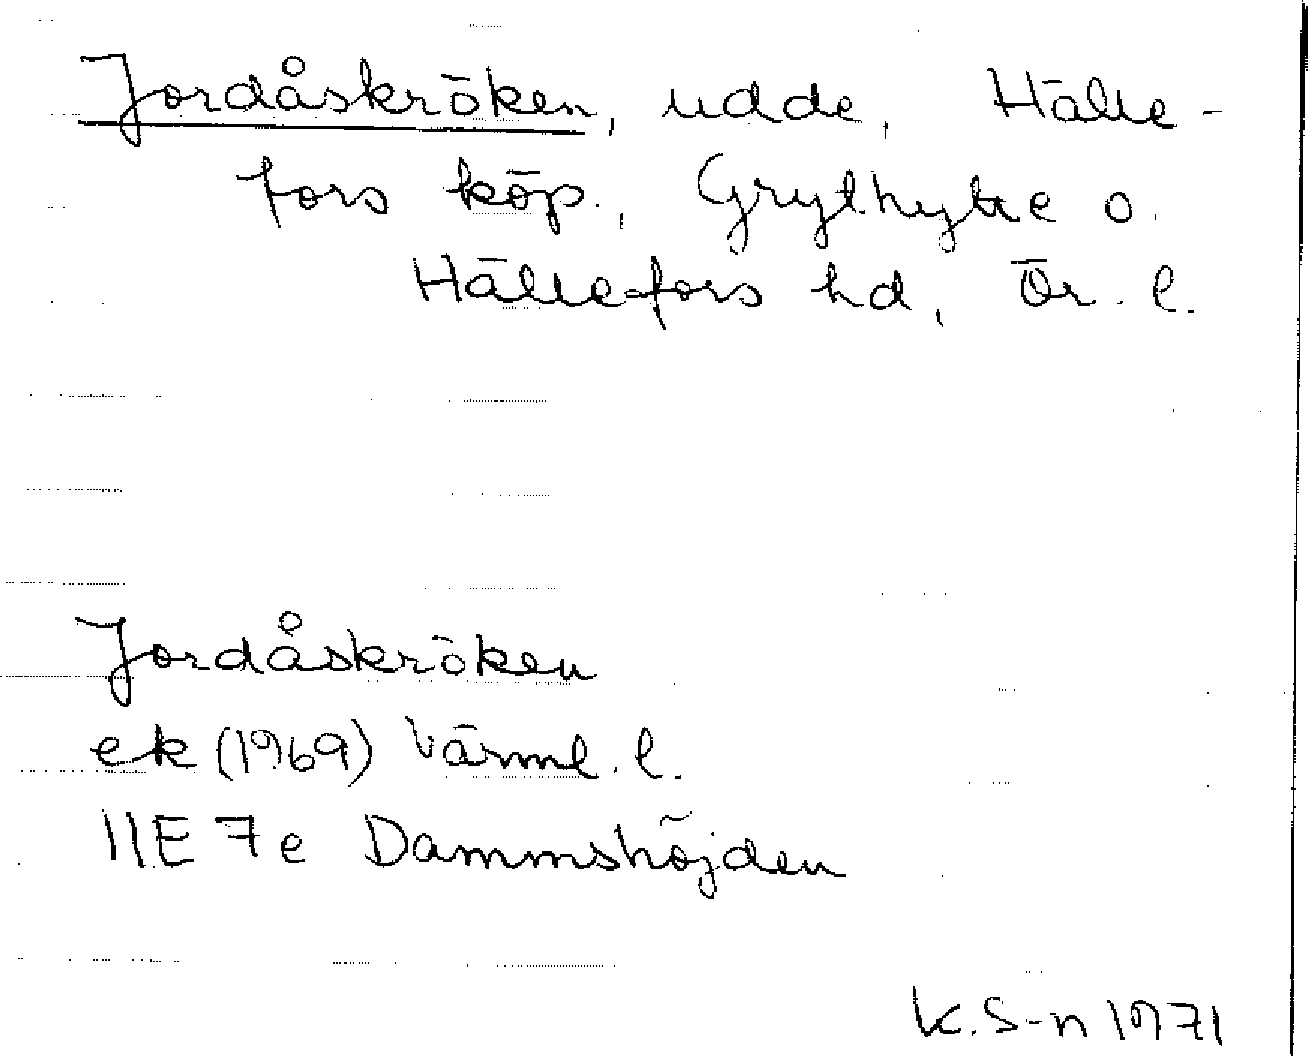 Jordåskröken, udde, Hälle-
fors köp., Grythytte o.
Hällefors hd, Ör. l.
Jordåskröken
ek (1969) Värml. l.
11E 7e Dammshöjden
K. S-n 1971